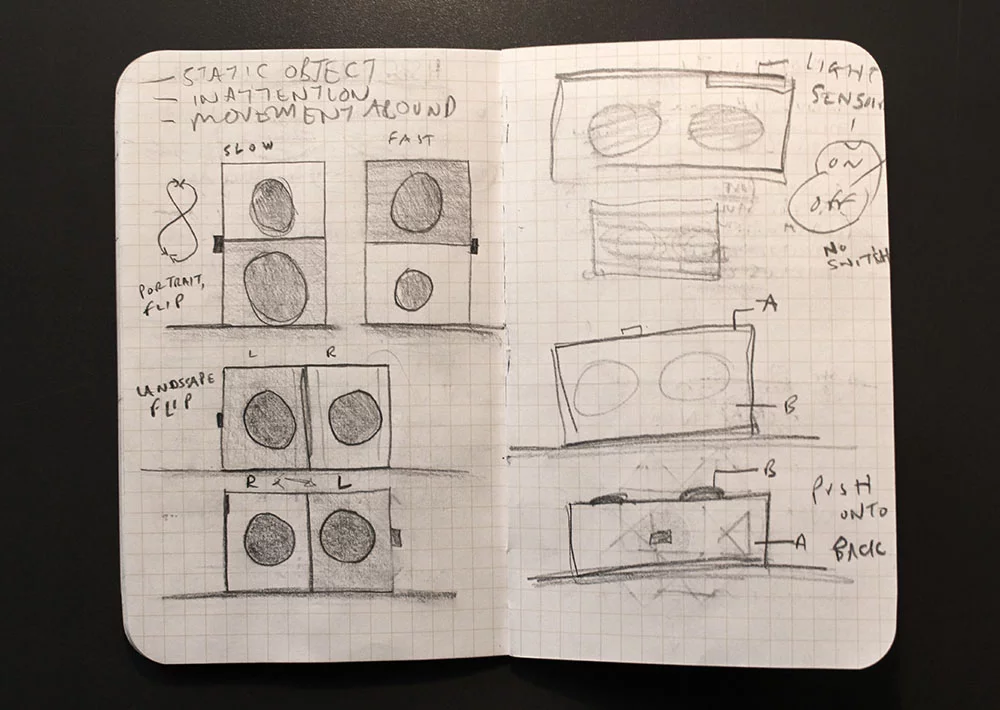 — STATIC OBJECT
— INATTENTION
— MOVEMENT AROUND
SLOW
FAST
PORTRAIT,
FLIP
L R
LANDSCAPE
FLIP
R L
LIGHT
SENSOR
ON
OFF
NO
SWITCH
A
B
B
A
PUSH
ONTO
BACK